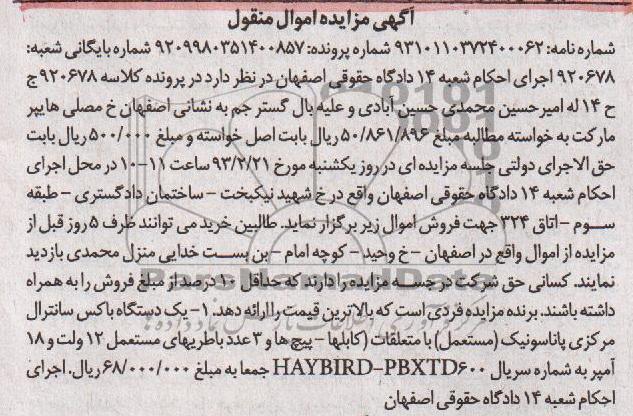 آگهی مزایده اموال منقول
شماره نامه: ۹۳۱۰۱۱۰۳۷۲۴۰۰۰۶۲ شماره پرونده: ۹۲۰۹۹۸۰۳۵۱۴۰۰۸۵۷ شماره بایگانی شعبه:
۹۲۰۶۷۸ اجرای احکام شعبه ۱۴ دادگاه حقوقی اصفهان در نظر دارد در پرونده کلاسه ۹۲۰۶۷۸ ج
ح ۱۴ له امیرحسین محمدی حسین آبادی و علیه بال گستر جم به نشانی اصفهان خ مصلی هایپر
مارکت به خواسته مطالبه مبلغ ۵۰/۸۶۱/۸۹۶ ریال بابت اصل خواسته و مبلغ ۵۰۰/۰۰۰ ریال بابت
حق الاجرای دولتی جلسه مزایده ای در روز یکشنبه مورخ ۹۳/۲/۲۱ ساعت ۱۱-۱۰ در محل اجرای
احکام شعبه ۱۴ دادگاه حقوقی اصفهان واقع در خ شهید نیکبخت - ساختمان دادگستری - طبقه
سوم - اتاق ۳۲۴ جهت فروش اموال زیر برگزار نماید. طالبین خرید می توانند ظرف ۵ روز قبل از
مزایده از اموال واقع در اصفهان - خ وحید - کوچه امام - بن بست خدایی منزل محمدی بازدید
نمایند. کسانی حق شرکت در جلسه مزایده را دارند که حداقل ۱۰ درصد از مبلغ فروش را به همراه
داشته باشند. برنده مزایده فردی است که بالاترین قیمت را ارائه دهد. ۱- یک دستگاه باکس سانترال
مرکزی پاناسونیک (مستعمل) با متعلقات (کابلها - پیچ ها و ۳ عدد باطریهای مستعمل ۱۲ ولت و ۱۸
آمپر به شماره سریال HAYBIRD-PBXTD۶۰۰ جمعا به مبلغ ۶۸/۰۰۰/۰۰۰ ریال. اجرای
احکام شعبه ۱۴ دادگاه حقوقی اصفهان
ParsNamadData